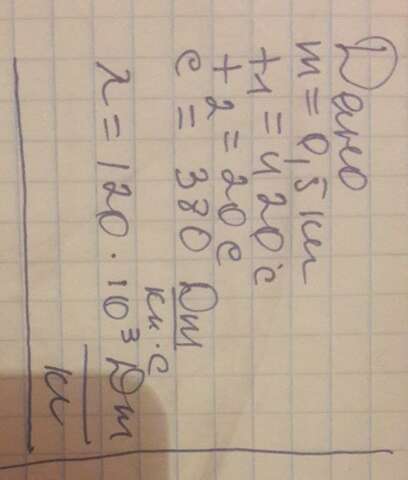 Дано
m = 0,5 кг
t1 = 420°C
t2 = 20 C
c = 380 Дж
кг·C
λ = 120 · 10³ Дж
кг